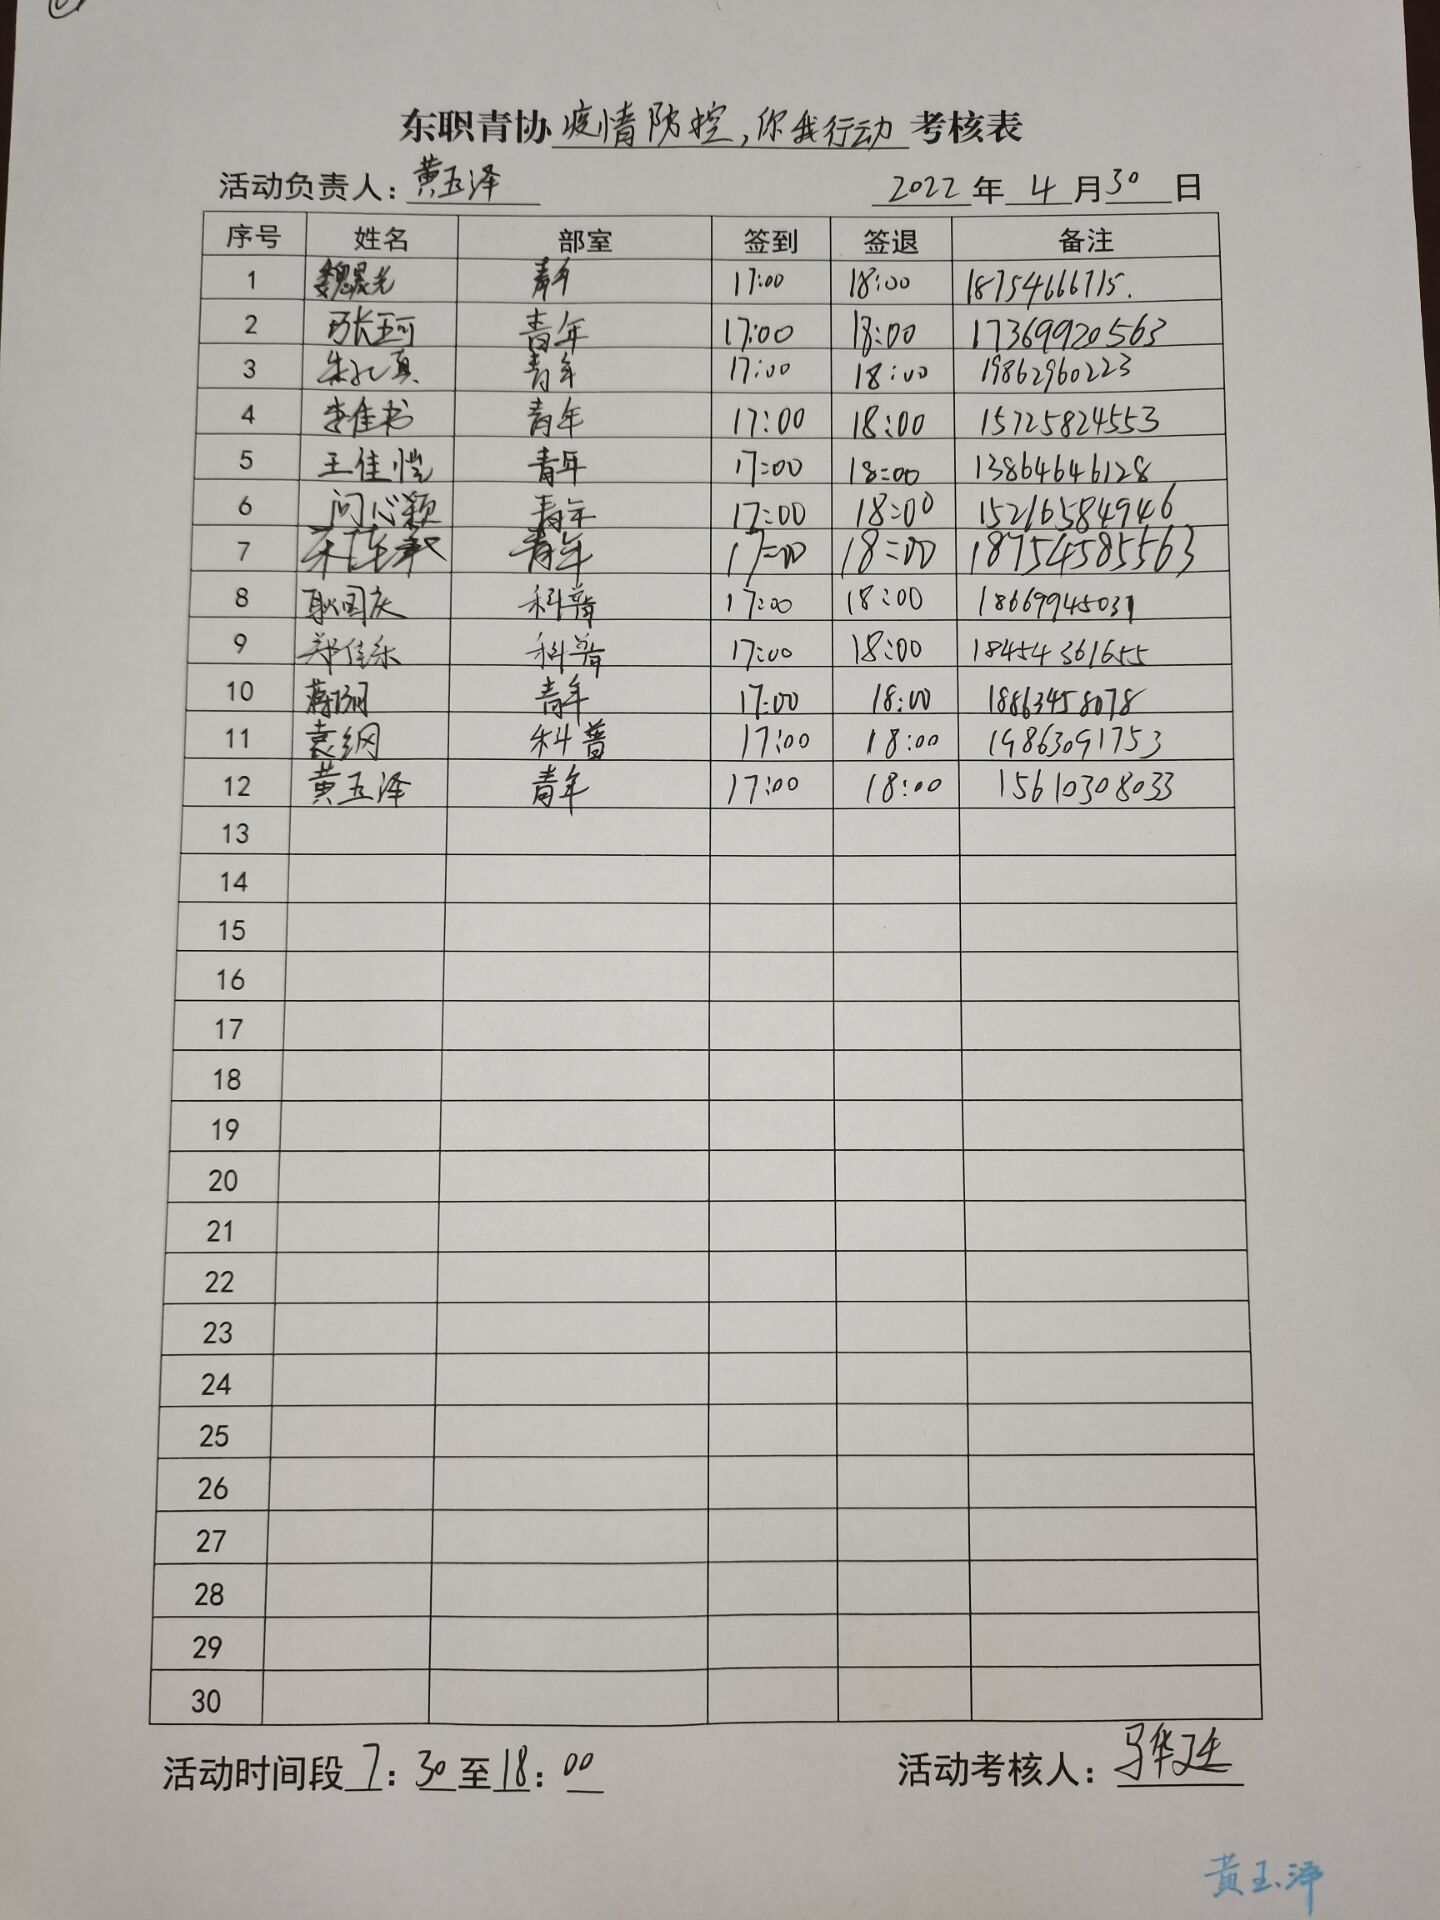 东职青协疫情防控，你我行动考核表
活动负责人：黄玉泽 2022年4月30日
序号 姓名 部室 签到 签退 备注
1 魏晨光 青年 17:00 18:00 18754666715.
2 张珂 青年 17:00 18:00 17369920563
3 朱孔真 青年 17:00 18:00 19862960223
4 李佳书 青年 17:00 18:00 15725824553
5 王佳恺 青年 17:00 18:00 13864646128
6 问心颖 青年 17:00 18:00 15216584946
7 青年 17:00 18:00 18754585563
8 耿国庆 科普 17:00 18:00 18669945031
9 郑佳乐 科普 17:00 18:00 18454361655
10 青年 17:00 18:00 18863458078
11 袁纲 科普 17:00 18:00 19863091753
12 黄玉泽 青年 17:00 18:00 15610308033
13
14
15
16
17
18
19
20
21
22
23
24
25
26
27
28
29
30
活动时间段7:30至18:00 活动考核人：马华廷
黄玉泽